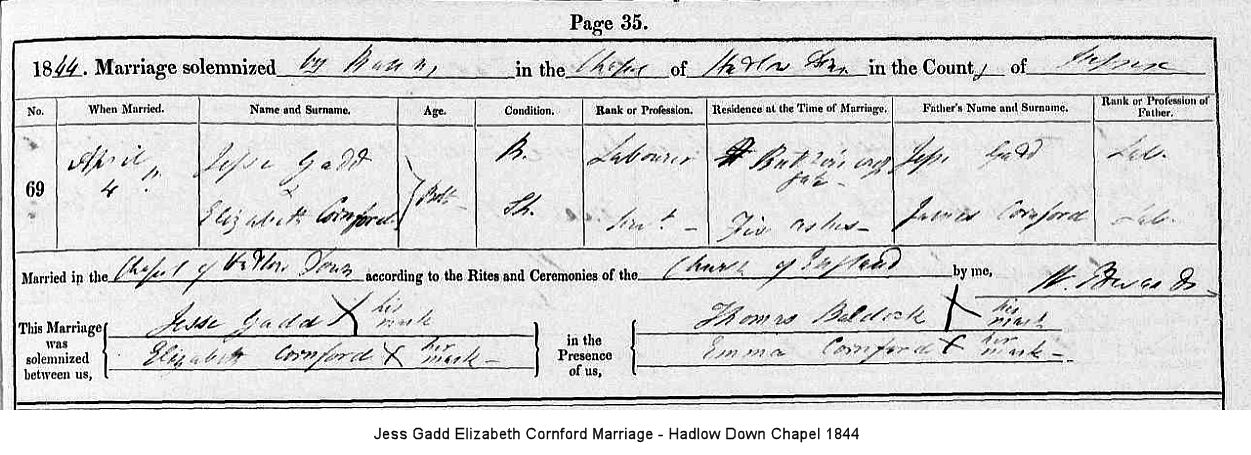 Page 35.
1844. Marriage solemnized by Banns, in the Chapel of Hadlow Down in the County of Sussex
No. When Married. Name and Surname. Age. Condition. Rank or Profession. Residence at the Time of Marriage. Father's Name and Surname. Rank or Profession of Father.
69 April 4th Jesse Gadd & Elizabeth Cornford Both B. Labourer Gate Jesse Gadd Lab.
Sp. Servt. Five ashes James Cornford Lab.
Married in the Chapel of Hadlow Down according to the Rites and Ceremonies of the Church of England by me,
This Marriage was solemnized between us, Jesse Gadd X his mark in the Presence of us, Thomas Baldock X his mark
Elizabeth Cornford X her mark Emma Cornford X her mark
Jess Gadd Elizabeth Cornford Marriage - Hadlow Down Chapel 1844